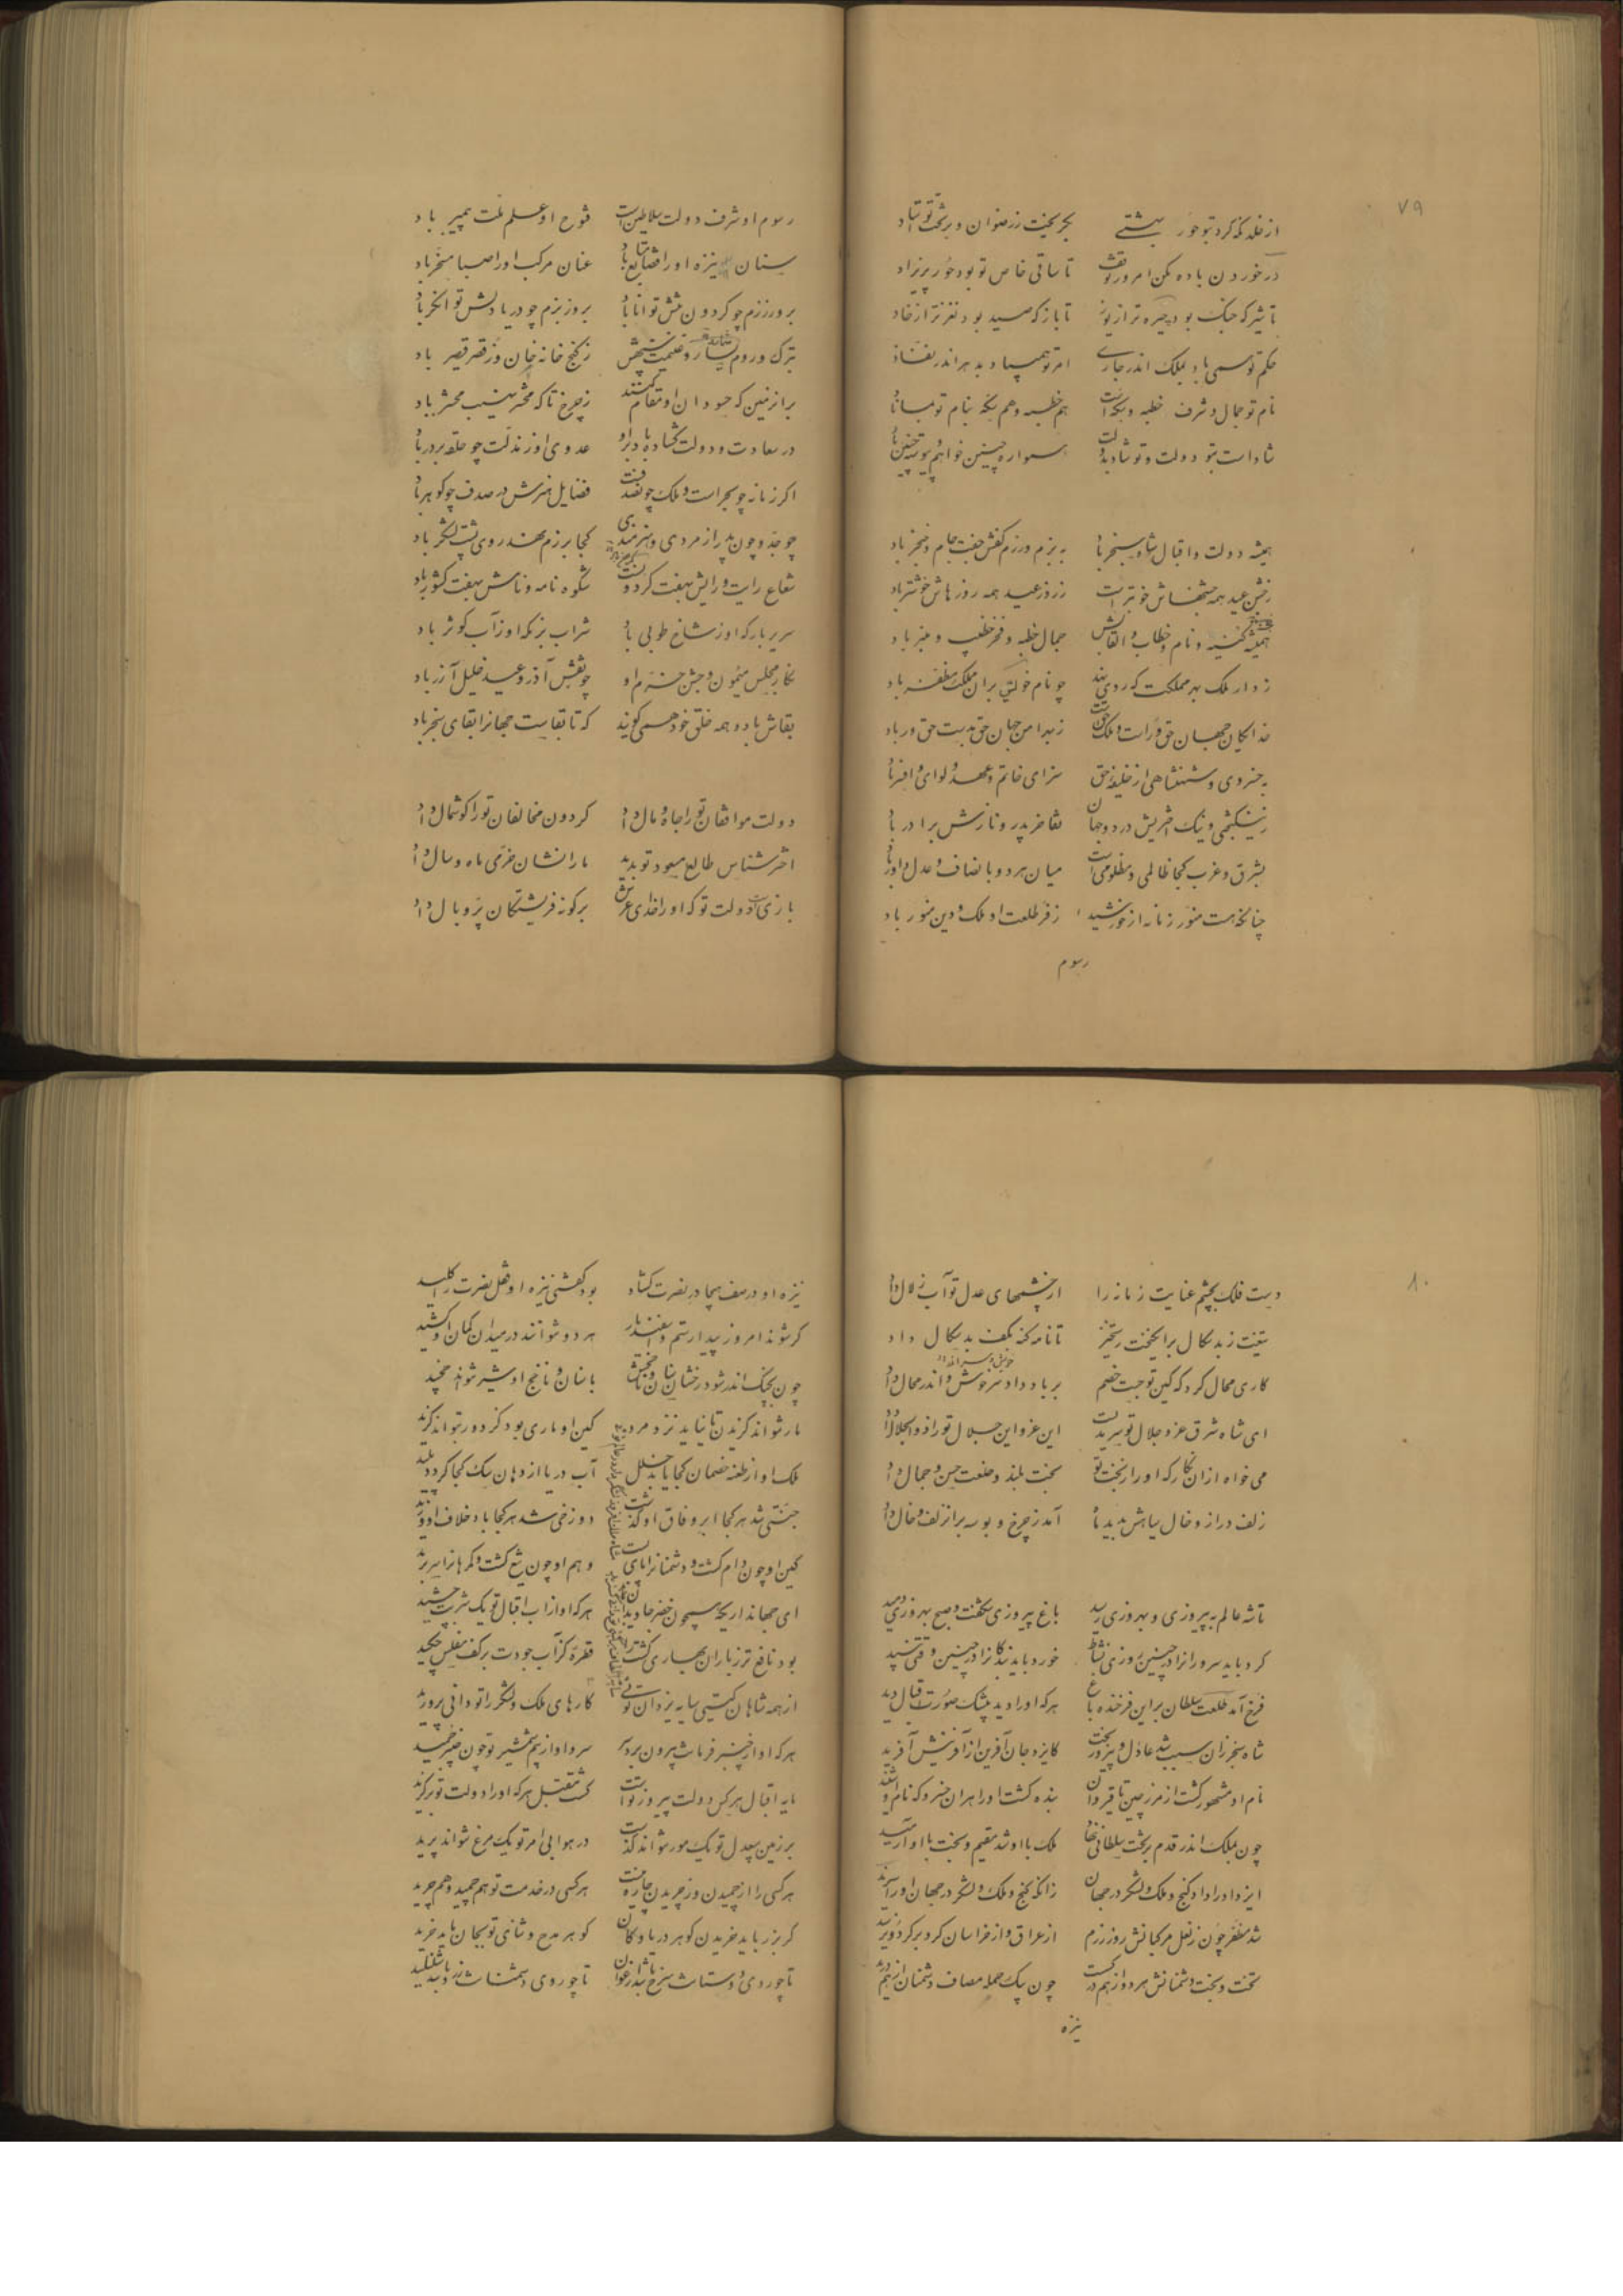 ۷۹
از خلد نکه کرد بتو حور بهشتی بگریخت ز رضوان و بر تخت تو شاد
در خوردن باده مکن امروز توقف تا ساقی خاص تو بود حور پریزاد
تا شیر که جنک بود چیره تر از یوز تا باز که صید بود نغزتر از خاد
حکم تو همی باد بملک اندر جاری امر تو همیدا و بدهر اندر نفاذ
نام تو جمال و شرف خطبه و سکه است هم خطبه و هم سکه بنام تو مباناد
شاد است بتو دولت و تو شاد بدولت همواره چنین خواهم پیوسته چنین باد
همیشه دولت و اقبال شاه سنجر باد به بزم و رزم کفش جفت جام و خنجر باد
ز جشن عید همه جشنهاش خوبتر است ز روز عید همه روزهاش خوشتر باد
همیشه کنیه و نام و خطاب و القابش جمال خطبه و فخر خطیب و منبر باد
ز دار ملک بهر مملکت که روی نهد چو نام خویش بران مملکت مظفر باد
خدایکان جهان حق وراست و ملک حق است ز بهر امن جهان حق بدست حق ور باد
به خسروی و شهنشاهی از خلیفه حق سزای خاتم و عهد و لوای و افسر باد
ز نیکبختی و نیک اختریش در دو جهان تفاخر پدر و نازش برادر باد
بشرق و غرب کجا ظالمی و مظلومی است میان هر دو بانصاف و عدل داور باد
چنانکه هست منور زمانه از خورشید ز فر طلعت او ملک و دین منور باد
رسوم
رسوم او شرف دولت سلاطین است فتوح او علم ملت پیمبر باد
سنان نیزه او را قضا متابع باد عنان مرکب او را صبا مسخر باد
بروز رزم چو کردون تنش توانا باد بروز بزم چو دریا دلش توانکر باد
بترک و روم نثار و غنیمت سپهش ز کنج خانه خان و ز قصر قیصر باد
بر از زمین که حسودان او مقام کنند ز چرخ تا که محشر نهیب محشر باد
در سعادت و دولت کشاده باد برو عدوی او ز مذلت چو حلقه بر در باد
اکر زمانه چو بحر است و ملک چون صدف است فضایل هنرش در صدف چو کوهر باد
چو جد و چون پدر از مردی و هنرمندی کجا برزم نهد روی پشت لشکر باد
شعاع رایت و رایش بهفت کردون است شکوه نامه و نامش بهفت کشور باد
سریر بارکه او ز شاخ طوبی باد شراب بزمکه او ز آب کوثر باد
نکار مجلس میمون و جشن خرم او چو نقش آذر و عید خلیل آزر باد
بقاش باد و همه خلق خود همی کویند که تا بقاست جهانرا بقای سنجر باد
دولت موافقان تو را جاه و مال داد کردون مخالفان تو را کوشمال داد
اختر شناس طالع مسعود تو بدید ما را نشان خرمی ماه و سال داد
بازی است دولت تو که او را خدای عرش بر کونه فرشتکان پر و بال داد
۸۰
دست فلک بچشم عنایت زمانه را از چشمهای عدل تو آب زلال داد
تیغت ز بدسکال برانکیخت رستخیز تا نامه کنه بکف بدسکال داد
کاری محال کرد که کین تو جست خصم بر باد داد سر خویش و اندر محال داد
ای شاه شرق عز و جلال تو سرمدیست این عز و این جلال تو را ذوالجلال داد
می خواه از آن نکار که او را ز بخت تو بخت بلند و خلعت حسن و جمال داد
زلف دراز و خال سیاهش بدید ماه آمد ز چرخ و بوسه بر آن زلف و خال داد
تا شه عالم به پیروزی و بهروزی رسید باغ پیروزی شکفت و صبح بهروزی دمید
کرد باید سرورانرا در چنین روزی نشاط خورد باید بندکانرا در چنین وقتی نبید
فرخ آمد طلعت سلطان بر این فرخنده باغ هر که او را دید بیشک صورت اقبال دید
شاه سنجر زان سبب شد عادل و پیروزبخت کایزد جان آفرین او را ز آفرینش آفرید
نام او مشهور کشت از مرز چین تا قیروان بنده کشت او را هران خسرو که نام او شنید
چون بملک اندر قدم بر تخت سلطانی نهاد ملک با او شد مقیم و بخت با او آرمید
ایزد او را داد کنج و ملک و لشکر در جهان زانکه کنج و ملک و لشکر در جهان او را سزید
شد مظفر چون ز نعل مرکبانش روز رزم از عراق و از خراسان کرد بر کردون رسید
تخت و بخت دشمنانش هر دو از هم در شکست چون بیک حمله مصاف دشمنان از هم درید
نیزه
نیزه او در صف هیجا در نصرت کشاد بود کفتی نیزه او قفل نصرت را کلید
کر شوند امروز پیدا رستم و اسفندیار هر دو نتوانند در میدان کمان او کشید
چون بجنک اندر شود رخشان سنان و خنجرش با سنان و خنجر او شیر نتواند چخید
مار نتواند کزیدن تا نیاید نزد مرد کین او ماری بود کز دور بتواند کزید
ملک او از طعنه خصمان کجا یابد خلل آب دریا از دهان سک کجا کردد پلید
جنتی شد هر کجا ابر وفاق او کذشت دوزخی شد هر کجا باد خلاف او وزید
کین او چون دام کشت و دشمنانرا پای بست وهم او چون تیغ کشت و کمرهانرا سر برید
ای جهانداری که همچون خضر جاویدان بماند هر که او از آب اقبال تو یک شربت چشید
بود نافع تر ز باران بهاری کشت را قطره کز آب جودت بر کف مفلس چکید
از همه شاهان کیتی سایه یزدان توئی کارهای ملک و لشکر را تو دانی پرورید
هر که او از چنبر فرمانت بیرون برد سر سر و او از بیم شمشیر تو چون چنبر خمید
مایه اقبال هر کس دولت پیروز تو است کشت مقبل هر که او را دولت تو برکزید
بر زمین بی عدل تو یک مور نتواند کذشت در هوا بی امر تو یک مرغ نتواند پرید
هر کسی را از چمیدن وز چریدن چاره نیست هر کسی در خدمت تو هم چمید و هم چرید
کر بزر باید خریدن کوهر دریا و کان کوهر مدح و ثنای تو بجان باید خرید
تا چو روی دوستانت سرخ باشد ارغوان تا چو روی دشمنانت زرد باشد شنبلید